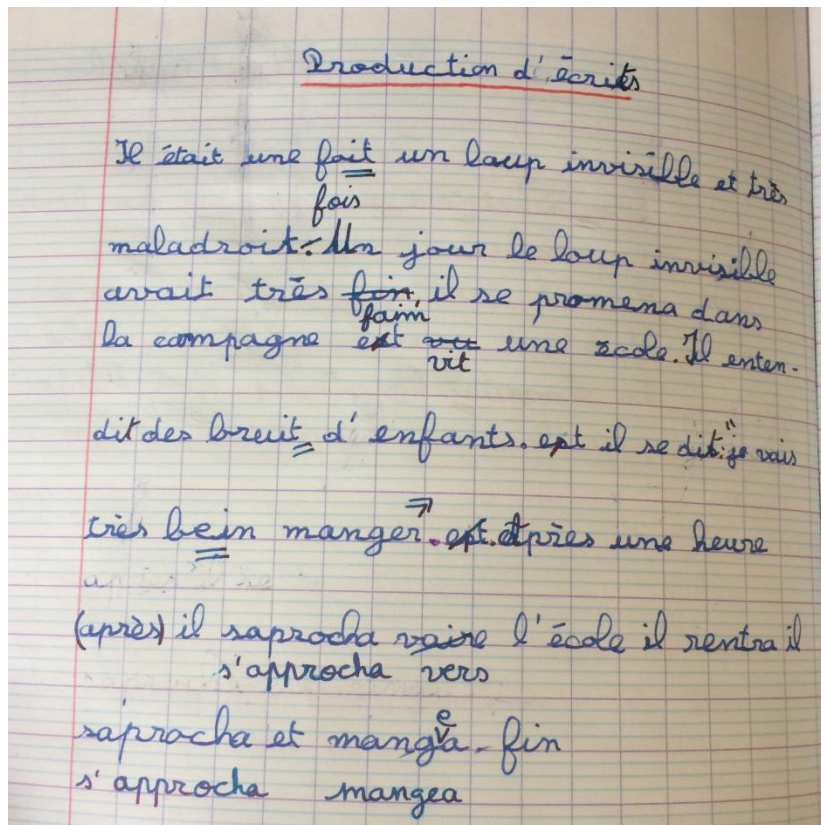 Production d'écrits
Il était une fait un loup invisible et très
fois
maladroit. Un jour le loup invisible
avait très fin, il se promena dans
faim
la compagne et vu une école. Il enten-
vit
dit des bruit d'enfants. et il se dit: "je vais
très bein manger". et. Après une heure
(après) il saprocha vaire l'école il rentra il
s'approcha vers
saprocha et mangea. fin
s'approcha mangea